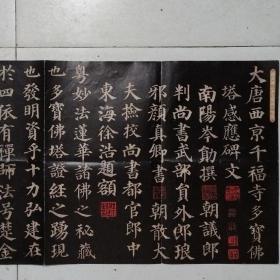 大唐西京千福寺多寶佛
塔感應碑文
南陽岑勛撰 朝議郎
判尚書武部員外郎琅
邪顏真卿書 朝散大
夫撿挍尚書都官郎中
東海徐浩題額
粵妙法蓮華諸佛之秘藏
也多寶佛塔證經之踴現
也發明資乎十力弘建在
於四依有禪師法号楚金